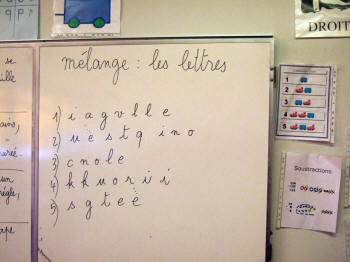 mélange : les lettres
1) i a g v l l e
2) u e s t q i n o
3) c n o l e
4) k k u o r i i
5) s g t e e
se
ille
ains,
un
règle,
ape
DROIT
1
2
3
4
5
Soustractions